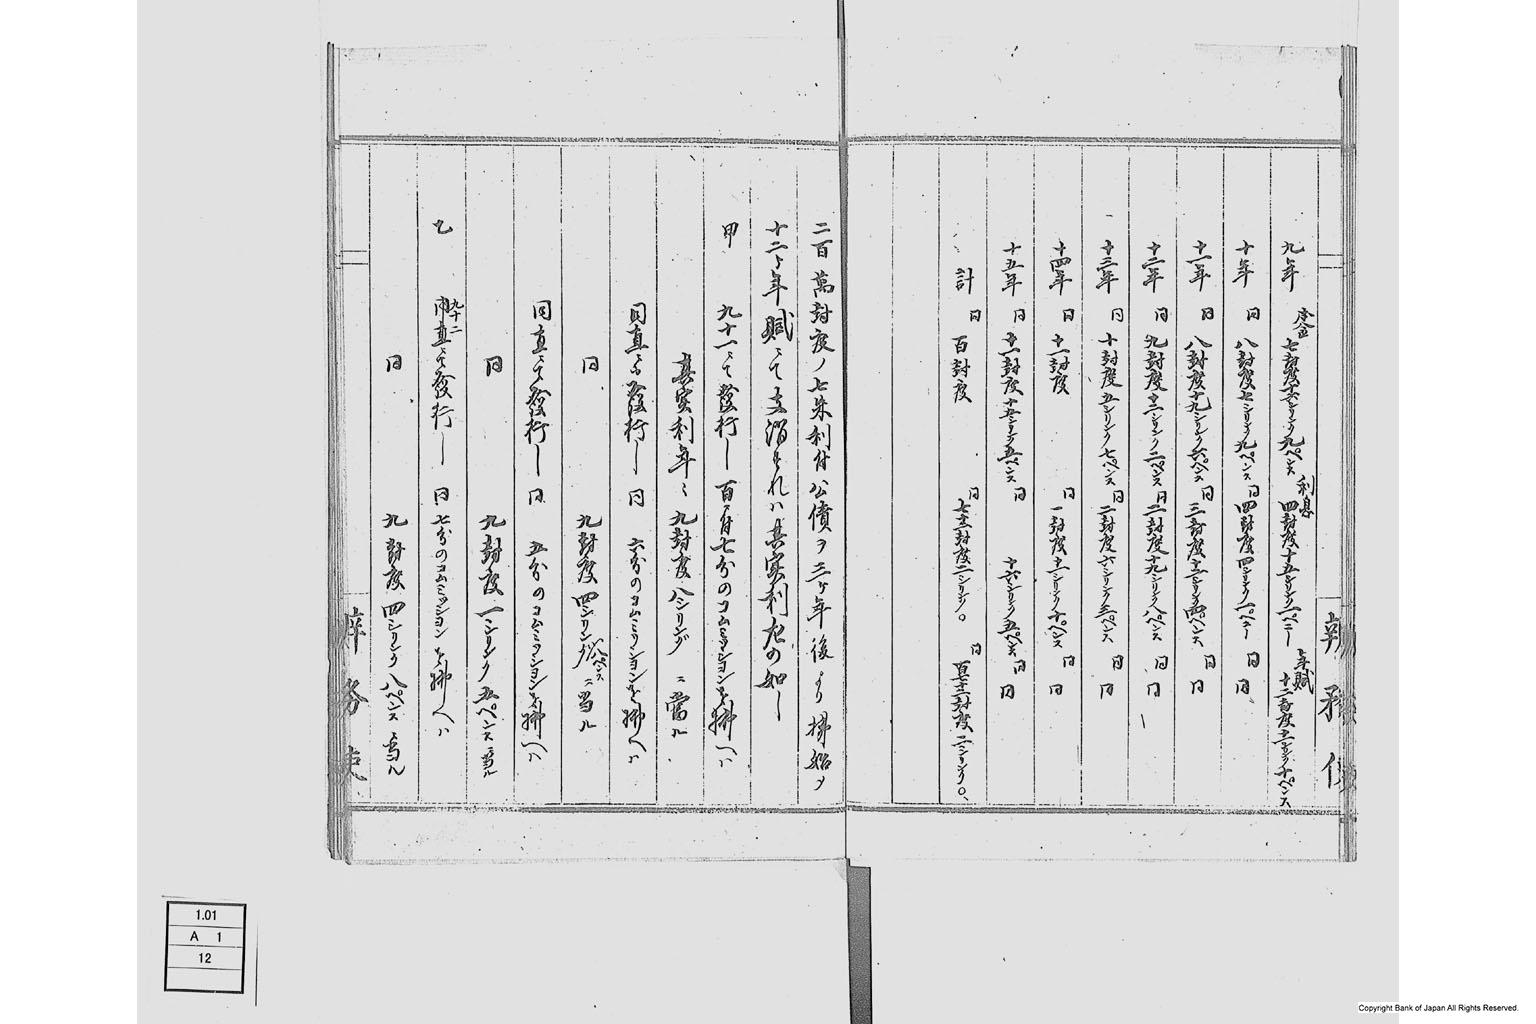 九年 元金 七封度十六シリンク九ペンス 利息 四封度十五シリンク一ペニー 年賦 十二封度十一シリンク十ペンス
十年 同 八封度七シリンク九ペンス 同 四封度四シリンク一ペニー 同 同
十一年 同 八封度十九シリンク六ペンス 同 三封度十二シリンク四ペンス 同 同
十二年 同 九封度十二シリンク二ペンス 同 二封度十九シリンク八ペンス 同 同
十三年 同 十封度五シリンク七ペンス 同 二封度六シリンク三ペンス 同 同
十四年 同 十一封度 同 一封度十一シリンク十ペンス 同 同
十五年 同 十一封度十五シリンク五ペンス 同 十六シリンク五ペンス 同 同
計 同 百封度 同 七十封度二シリンク〇 同 百十三封度二シリンク〇
辨務使
二百萬封度ノ七朱利付公債ヲ三ケ年後より拂始メ
十二ケ年賦ニて支消すれハ其実利左の如し
甲 九十一ニて發行し百ニ付七分のコムミッションを拂へハ
真実利年ニ九封度八シリング ニ當ル
同直ニて發行し 同 六分のコムミッションを拂へハ
同 九封度四シリング八ペンス ニ当ル
同直ニて發行し 同 五分のコムミッションを拂へハ
同 九封度一シリンク五ペンス ニ当ル
乙 九十二市直ニて發行し 同 七分のコムミッションを拂へハ
同 九封度四シリンク八ペンス ニ当ル
辨務使
1.01
A 1
12
Copyright Bank of Japan All Rights Reserved.